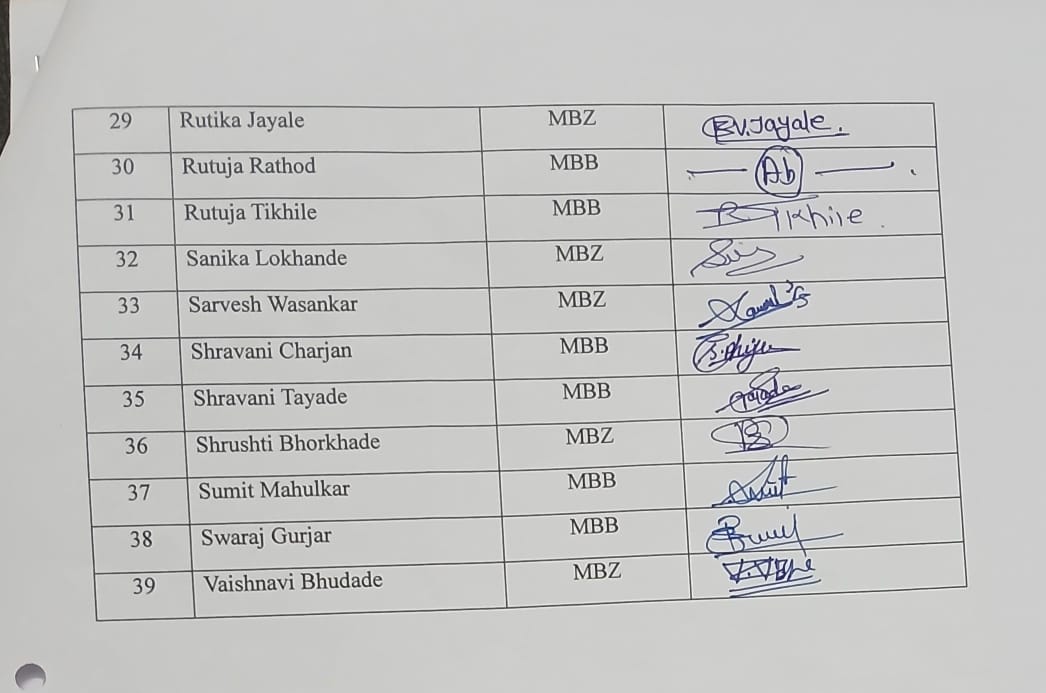 29 Rutika Jayale MBZ Jayale.
30 Rutuja Rathod MBB Ab
31 Rutuja Tikhile MBB Tikhile.
32 Sanika Lokhande MBZ
33 Sarvesh Wasankar MBZ
34 Shravani Charjan MBB
35 Shravani Tayade MBB
36 Shrushti Bhorkhade MBZ
37 Sumit Mahulkar MBB
38 Swaraj Gurjar MBB
39 Vaishnavi Bhudade MBZ